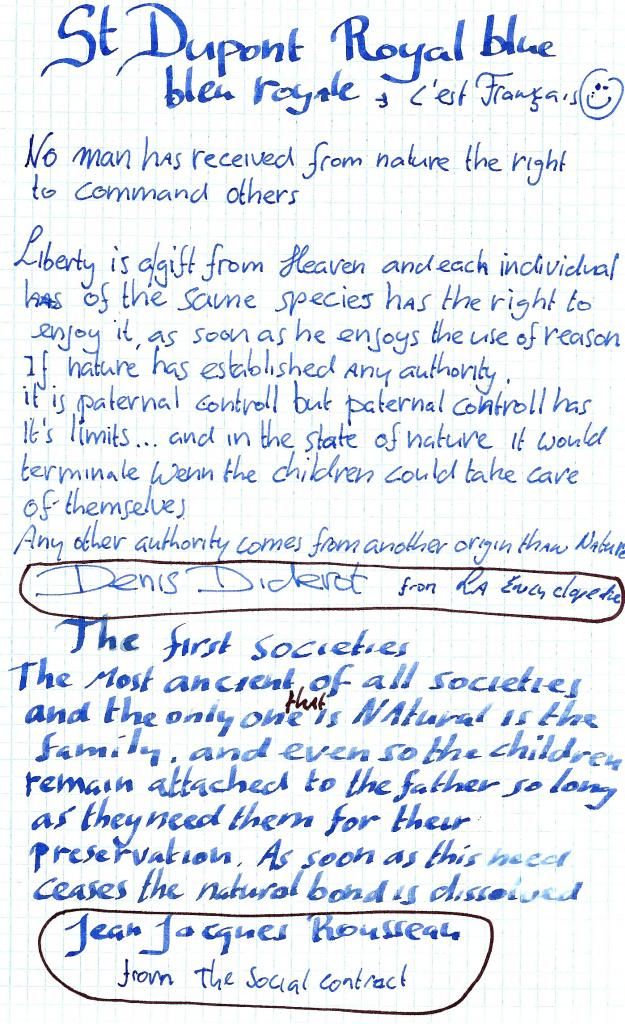 St Dupont Royal blue
bleu royale → c'est Français
No man has received from nature the right
to command others
Liberty is a gift from Heaven and each individual
has of the same species has the right to
enjoy it, as soon as he enjoys the use of reason
If nature has established any authority,
it is paternal controll but paternal controll has
It's limits... and in the state of nature it would
terminale wenn the children could take care
of themselves
Any other authority comes from another origin than Nature
Denis Diderot from LA Encyclopedie
The first societies
The Most ancient of all societies
and the only one that is NAtural is the
family, and even so the children
remain attached to the father so long
as they need them for their
preservation. As soon as this need
ceases the natural bond is dissolved
Jean Jacques Rousseau
from The Social contract